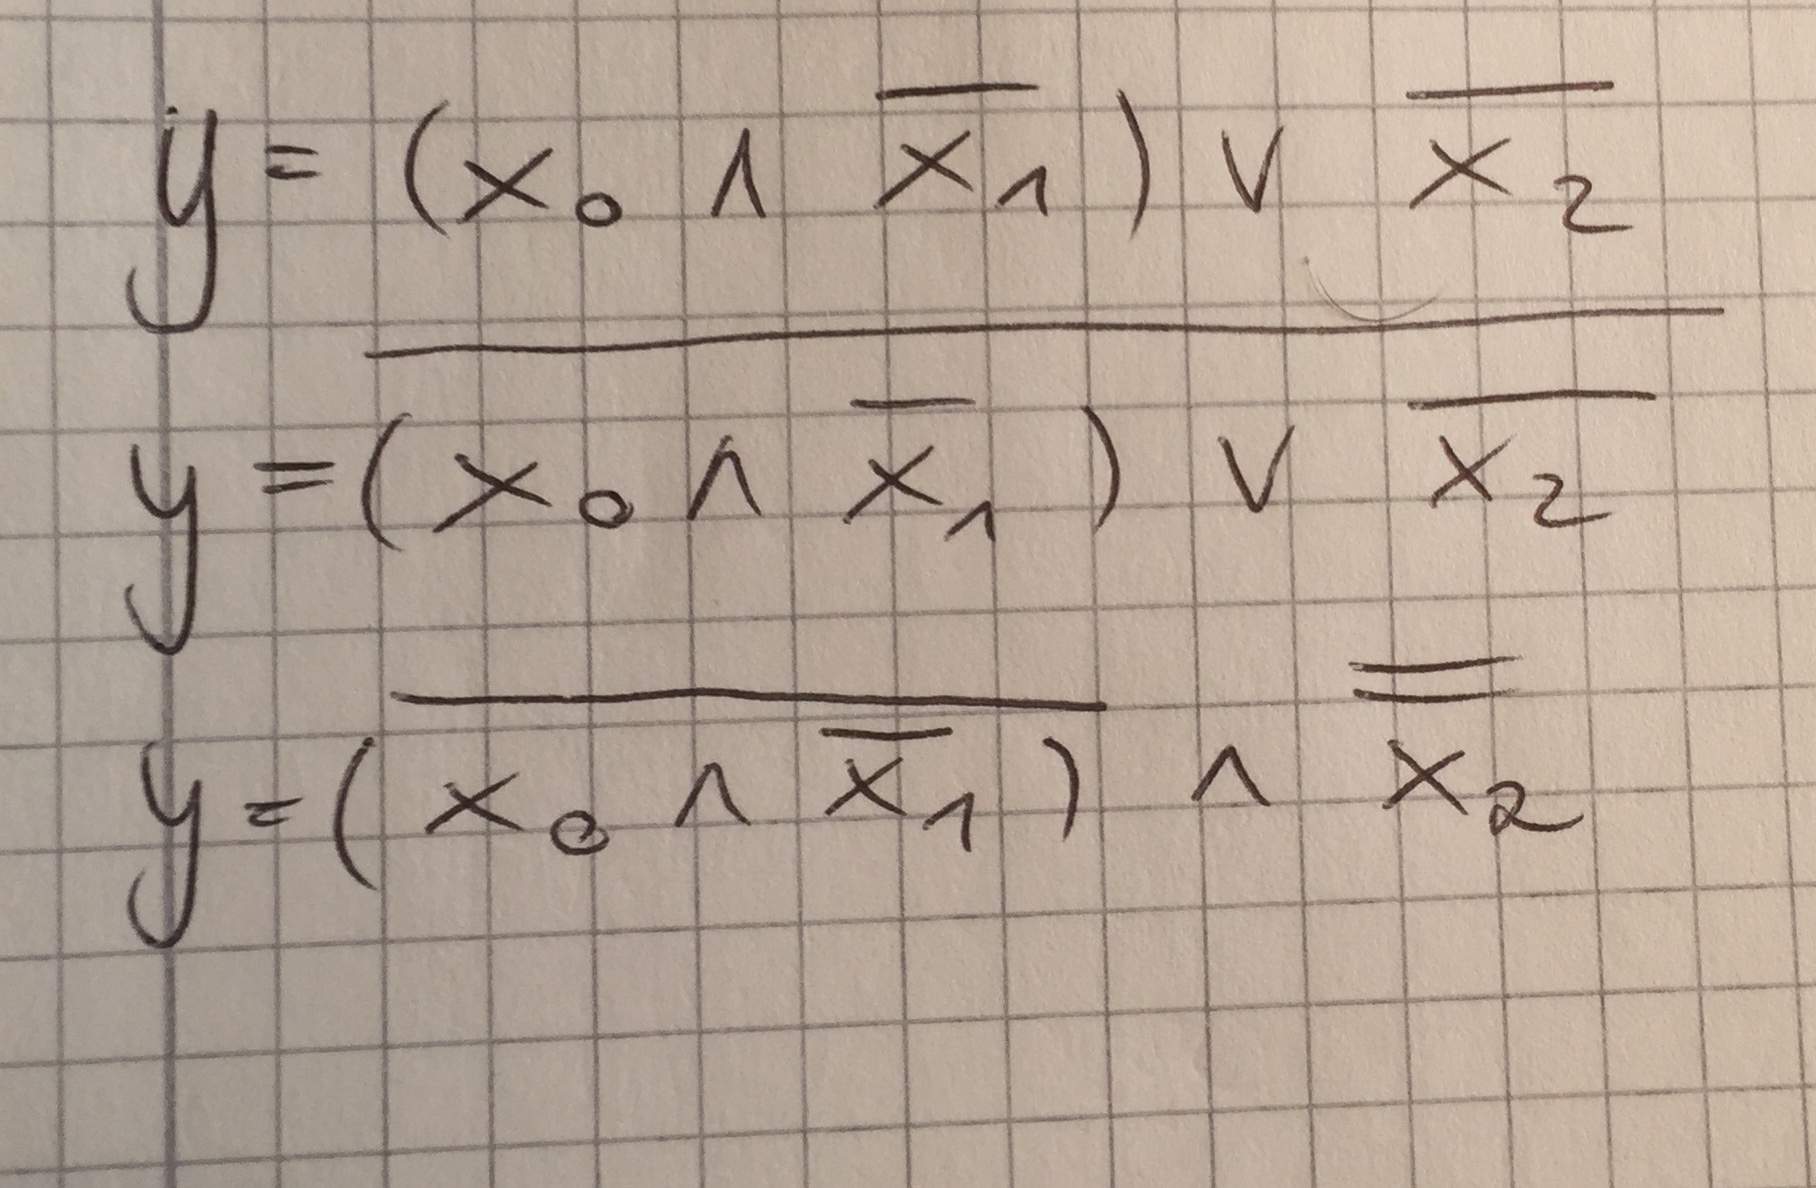 y = (x₀ ∧ x̅₁) ∨ x̅₂
y = \overline{(x₀ ∧ x̅₁) ∨ x̅₂}
y = \overline{(x₀ ∧ x̅₁)} ∧ x̿₂